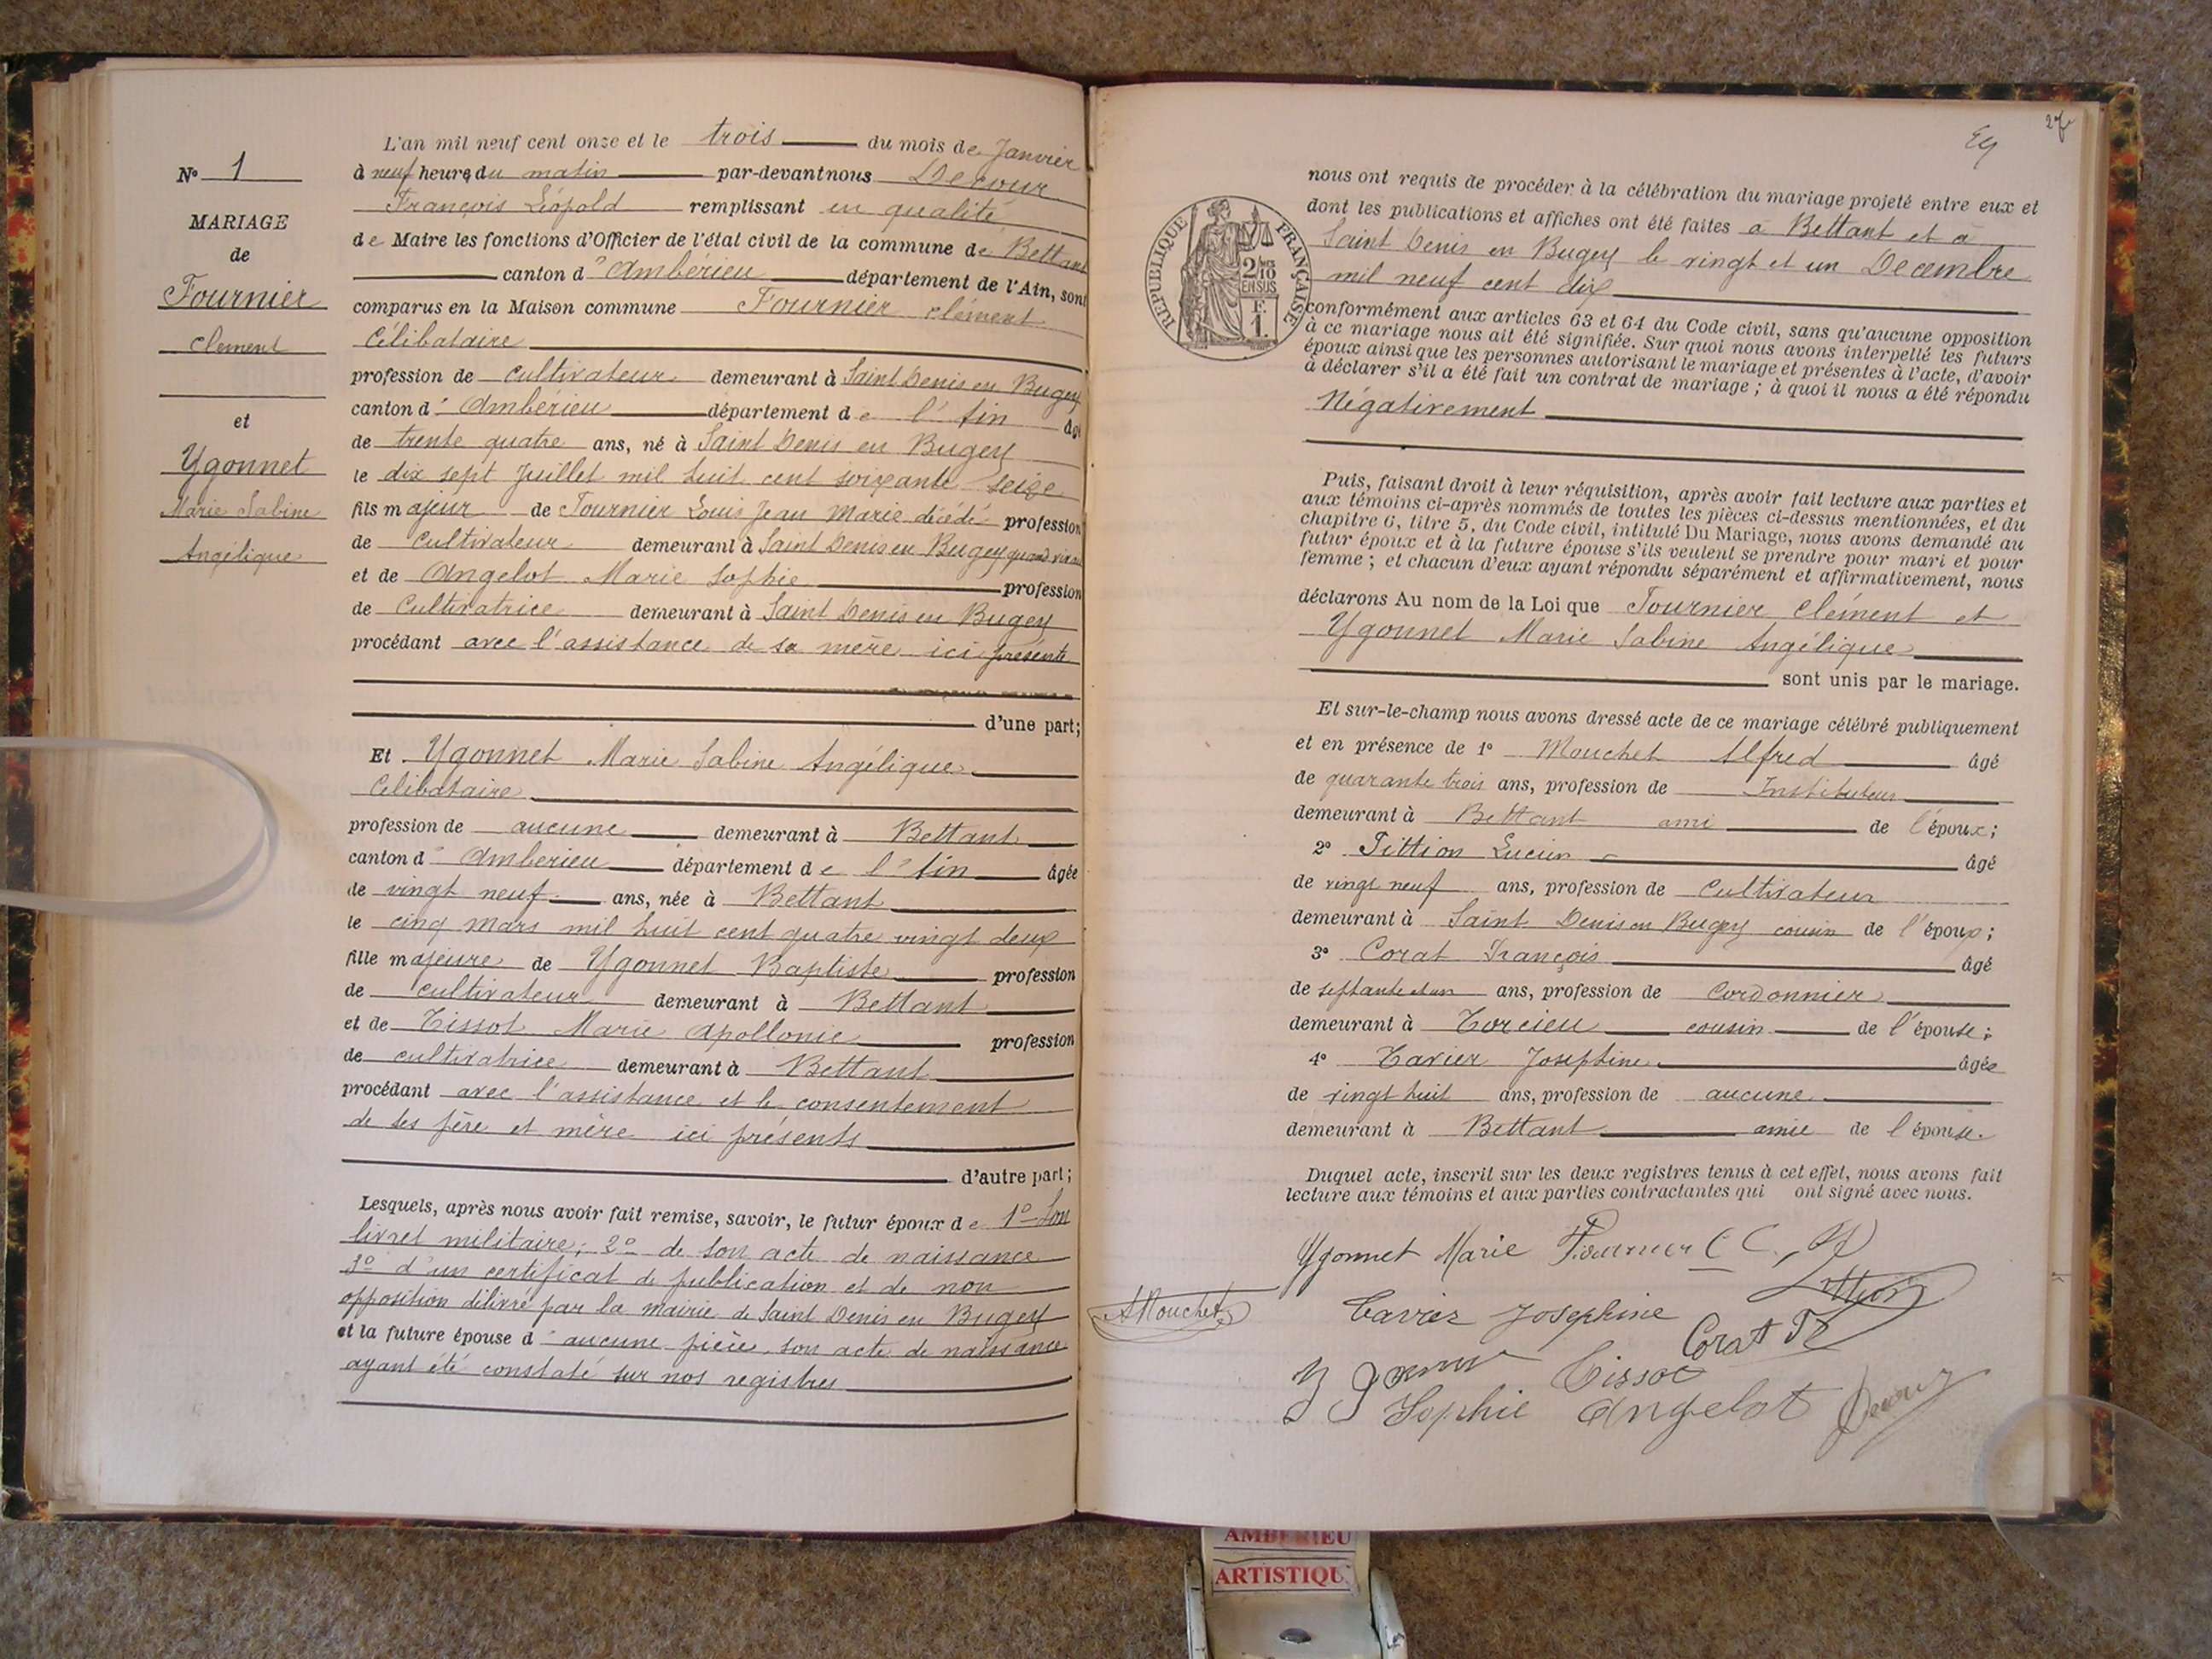 N° 1
MARIAGE
de
Fournier
Clément
et
Ygonnet
Marie Sabine
Angélique
L'an mil neuf cent onze et le trois du mois de Janvier
à neuf heures du matin par-devant nous Decour
François Léopold remplissant en qualité
de Maire les fonctions d'Officier de l'état civil de la commune de Bettant
canton d'Ambérieu département de l'Ain, sont
comparus en la Maison commune Fournier Clément
Célibataire
profession de Cultivateur demeurant à Saint Denis en Bugey
canton d'Ambérieu département de l'Ain âgé
de trente quatre ans, né à Saint Denis en Bugey
le dix sept Juillet mil huit cent soixante seize
fils majeur de Fournier Louis Jean Marie décédé profession
de Cultivateur demeurant à Saint Denis en Bugey quand vivait
et de Angelot Marie Sophie profession
de Cultivatrice demeurant à Saint Denis en Bugey
procédant avec l'assistance de sa mère ici présente
d'une part;
Et Ygonnet Marie Sabine Angélique
Célibataire
profession de aucune demeurant à Bettant
canton d'Ambérieu département de l'Ain âgée
de vingt neuf ans, née à Bettant
le cinq Mars mil huit cent quatre vingt deux
fille majeure de Ygonnet Baptiste profession
de cultivateur demeurant à Bettant
et de Tissot Marie Apollonie profession
de cultivatrice demeurant à Bettant
procédant avec l'assistance et le consentement
de ses père et mère ici présents
d'autre part;
Lesquels, après nous avoir fait remise, savoir, le futur époux de 1° Son
livret militaire; 2° de son acte de naissance
3° d'un certificat de publication et de non
opposition délivré par la mairie de Saint Denis en Bugey
et la future épouse d'aucune pièce, son acte de naissance
ayant été constaté sur nos registres
27
REPUBLIQUE FRANÇAISE
2/10
EN SUS
F.
1.
nous ont requis de procéder à la célébration du mariage projeté entre eux et
dont les publications et affiches ont été faites à Bettant et à
Saint Denis en Bugey le vingt et un Decembre
mil neuf cent dix
conformément aux articles 63 et 64 du Code civil, sans qu'aucune opposition
à ce mariage nous ait été signifiée. Sur quoi nous avons interpellé les futurs
époux ainsi que les personnes autorisant le mariage et présentes à l'acte, d'avoir
à déclarer s'il a été fait un contrat de mariage; à quoi il nous a été répondu
Négativement
Puis, faisant droit à leur réquisition, après avoir fait lecture aux parties et
aux témoins ci-après nommés de toutes les pièces ci-dessus mentionnées, et du
chapitre 6, titre 5, du Code civil, intitulé Du Mariage, nous avons demandé au
futur époux et à la future épouse s'ils veulent se prendre pour mari et pour
femme; et chacun d'eux ayant répondu séparément et affirmativement, nous
déclarons Au nom de la Loi que Fournier Clément et
Ygonnet Marie Sabine Angélique
sont unis par le mariage.
Et sur-le-champ nous avons dressé acte de ce mariage célébré publiquement
et en présence de 1° Mouchet Alfred âgé
de quarante trois ans, profession de Instituteur
demeurant à Bettant ami de l'époux;
2° Tittion Lucien âgé
de vingt neuf ans, profession de Cultivateur
demeurant à Saint Denis en Bugey cousin de l'époux;
3° Corat François âgé
de septante et un ans, profession de Cordonnier
demeurant à Torcieu cousin de l'épouse;
4° Tavier Joséphine âgée
de vingt huit ans, profession de aucune
demeurant à Bettant amie de l'épouse.
Duquel acte, inscrit sur les deux registres tenus à cet effet, nous avons fait
lecture aux témoins et aux parties contractantes qui ont signé avec nous.
Ygonnet Marie Fournier C
Tittion
AMouchet
Tavier Josephine
Corat
Tissot
Sophie Angelot
AMBERIEU
ARTISTIQU